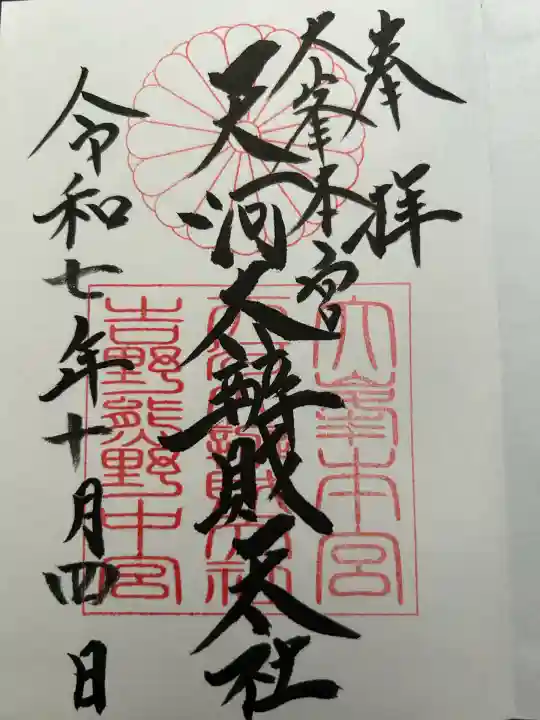 奉拝
大峯本宮
天河大辨財天社
令和七年十月四日
大峯本宮
天河大辨財天社
吉野熊野中宮